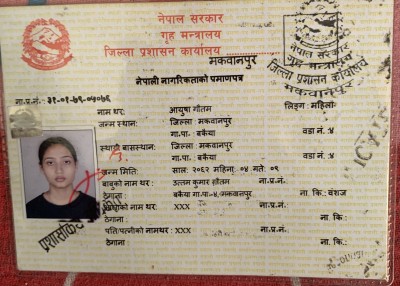 नेपाल सरकार
गृह मन्त्रालय
जिल्ला प्रशासन कार्यालय
मकवानपुर
नेपाली नागरिकताको प्रमाणपत्र
नेपाल सरकार
गृह मन्त्रालय
जिल्ला प्रशासन कार्यालय
मकवानपुर
ना.प्र.नं.: ३१-०१-७९-०५०७६
नाम थर: आयुषा गौतम लिङ्ग: महिला
जन्म स्थान: जिल्ला मकवानपुर
गा.पा. बकैया वडा नं. ४
स्थायी बासस्थान: जिल्ला मकवानपुर
गा.पा.: बकैया वडा नं. ४
जन्म मिति: साल: २०६२ महिना: ०४ गते: ०९
बाबुको नाम थर: उत्तम कुमार गौतम ना.प्र.नं.:
ठेगाना: बकैया गा.पा-४, मकवानपुर ना. कि: वंशज
आमाको नाम थर: XXX ना.प्र.नं.:
ठेगाना: ना. कि.:
पति/पत्नीको नामथर: XXX ना.प्र.नं.:
ठेगाना ना. कि.: